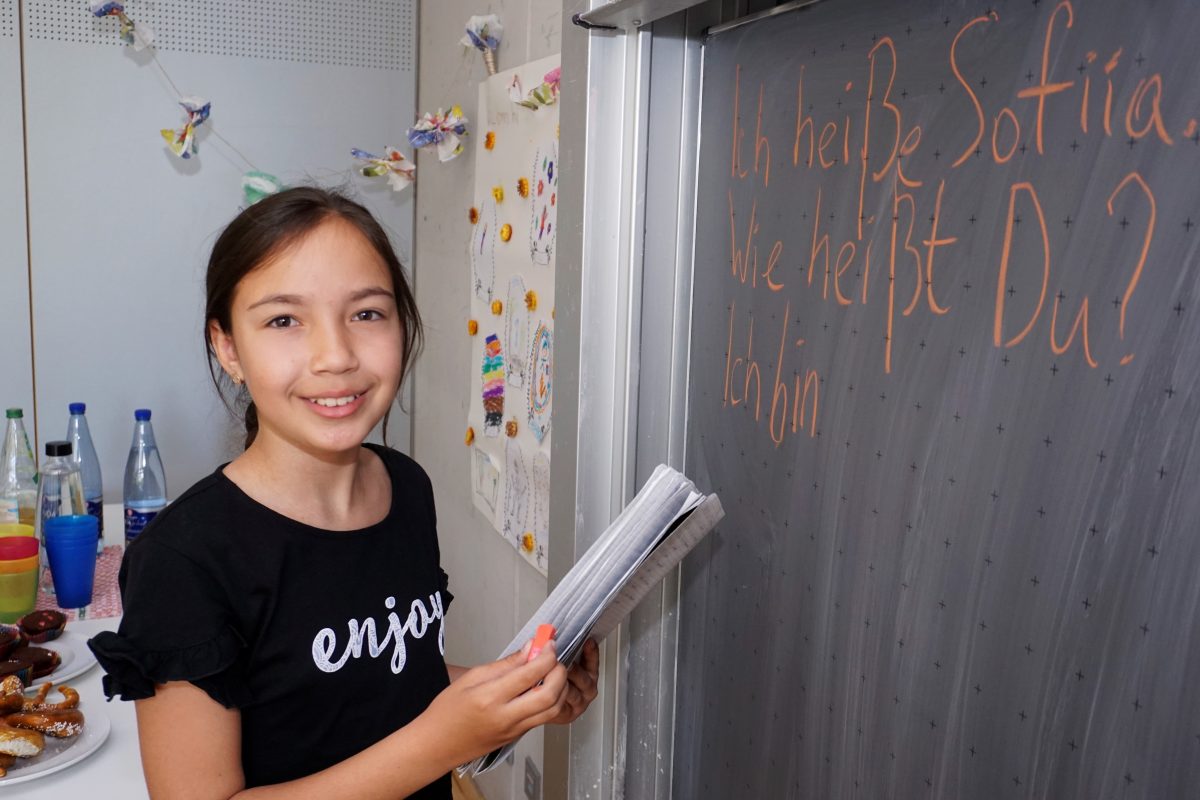 Ich heiße Sofiia.
Wie heißt Du?
Ich bin
enjoy